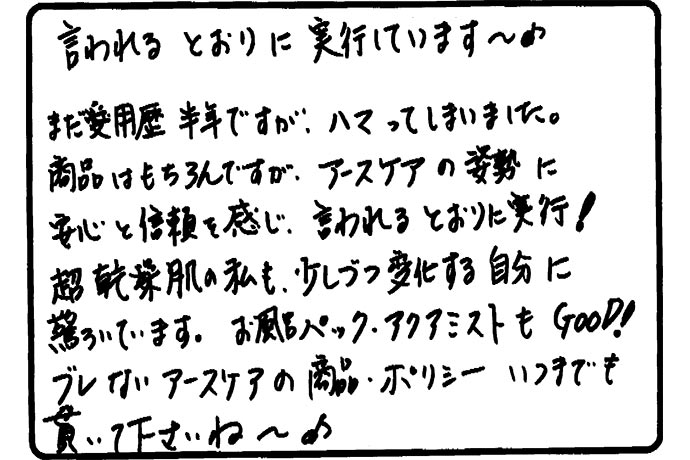 言われる とおりに 実行しています〜♪
まだ愛用歴 半年ですが、ハマってしまいました。
商品はもちろんですが、アースケアの姿勢に
安心と信頼を感じ、言われるとおりに実行!
超乾燥肌の私も、少しづつ変化する自分に
驚ろいています。お風呂パック・アクアミストもGOOD!
ブレないアースケアの商品・ポリシーいつまでも
貫いて下さいね〜♪